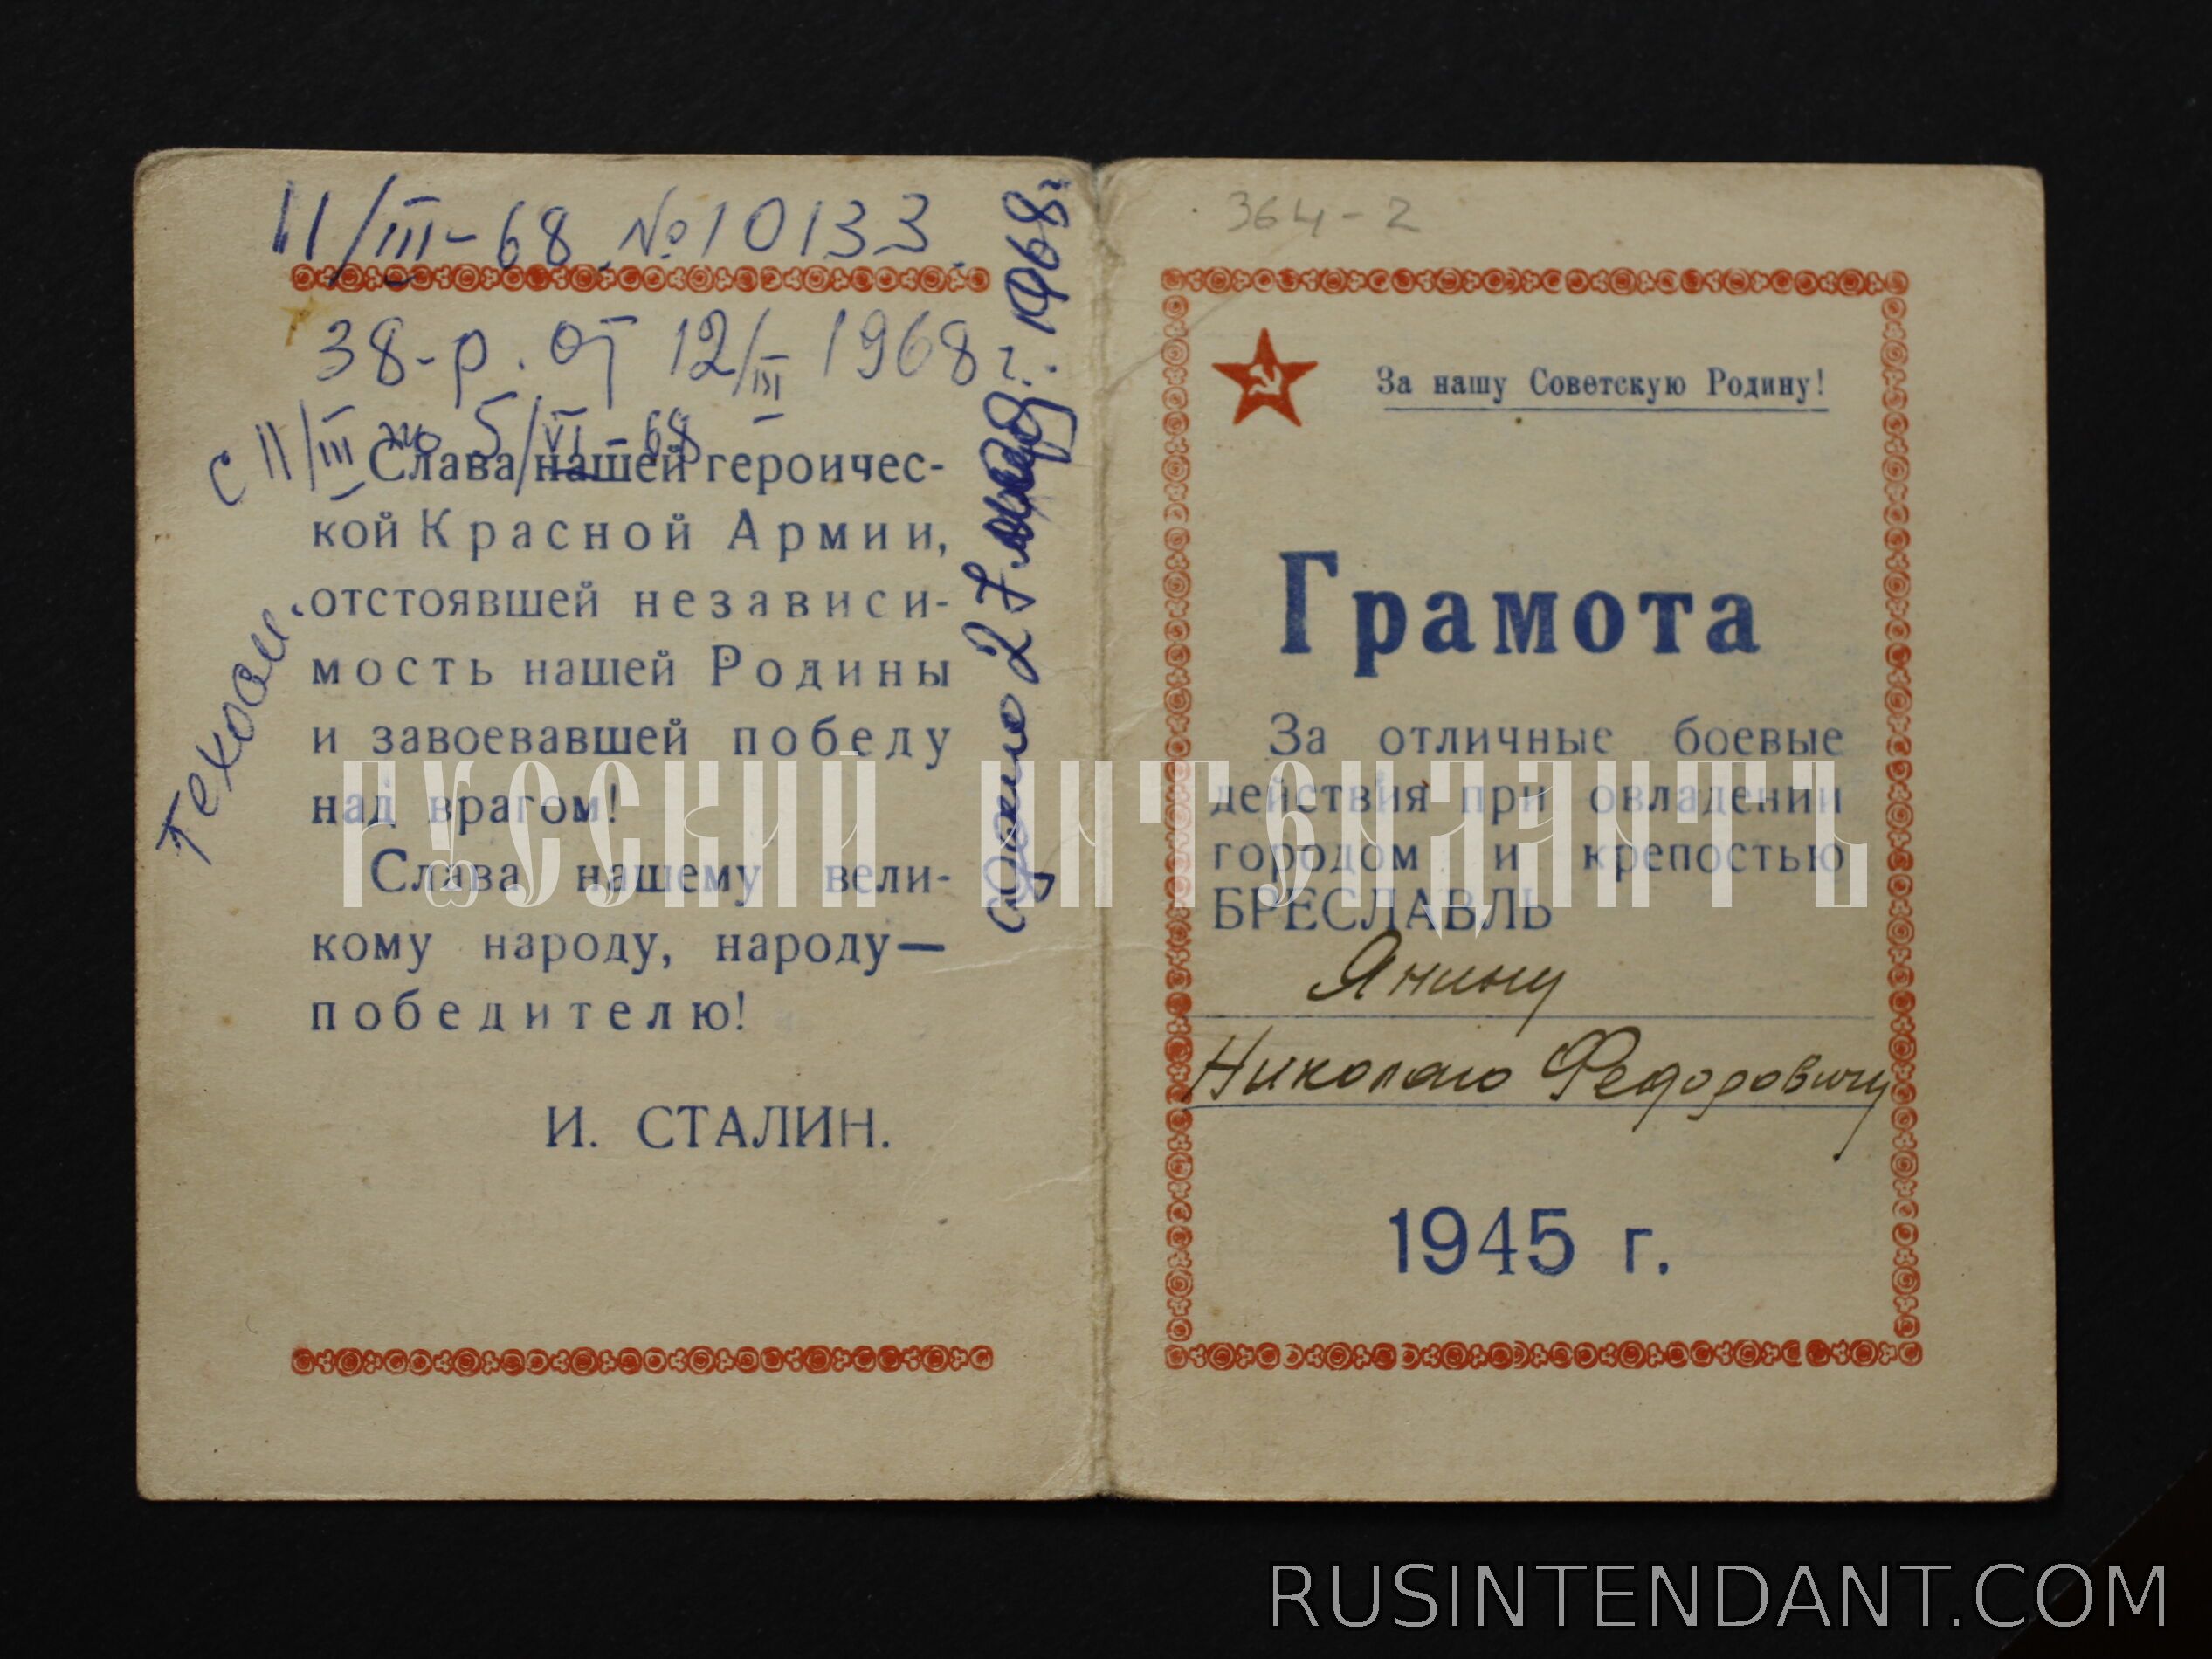 11/III-68 № 10133.
38-р. от 12/III 1968 г.
с 11/III по 5/VI-68
Слава нашей героичес-
кой Красной Армии,
отстоявшей независи-
мость нашей Родины
и завоевавшей победу
над врагом!
Слава нашему вели-
кому народу, народу—
победителю!
И. СТАЛИН.
27 1968 г.
364-2
За нашу Советскую Родину!
Грамота
За отличные боевые
действия при овладении
городом и крепостью
БРЕСЛАВЛЬ
Янину
Николаю Федоровичу
1945 г.
РУССКИЙ ИНТЕНДАНТЪ
RUSINTENDANT.COM